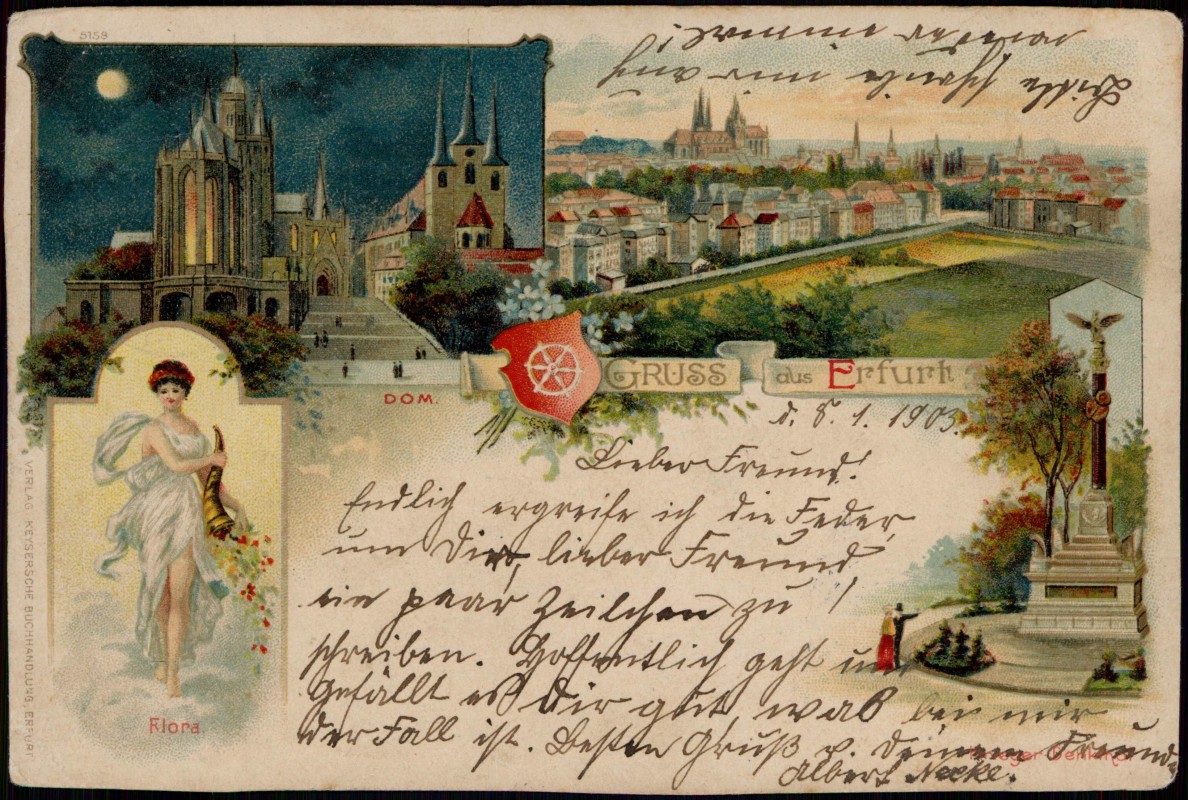 5159
Bitte schreibe mir auch
DOM.
GRUSS aus Erfurt
d. 8. 1. 1903.
Lieber Freund!
Endlich ergreife ich die Feder,
um Dir, lieber Freund,
ein paar Zeilchen zu
schreiben. Hoffentlich geht und
gefällt es Dir gut, was bei mir
der Fall ist. Besten Gruß v. Deinem Freund
Albert
Flora
Krieger Denkmal
VERLAG KEYSERSCHE BUCHHANDLUNG, ERFURT